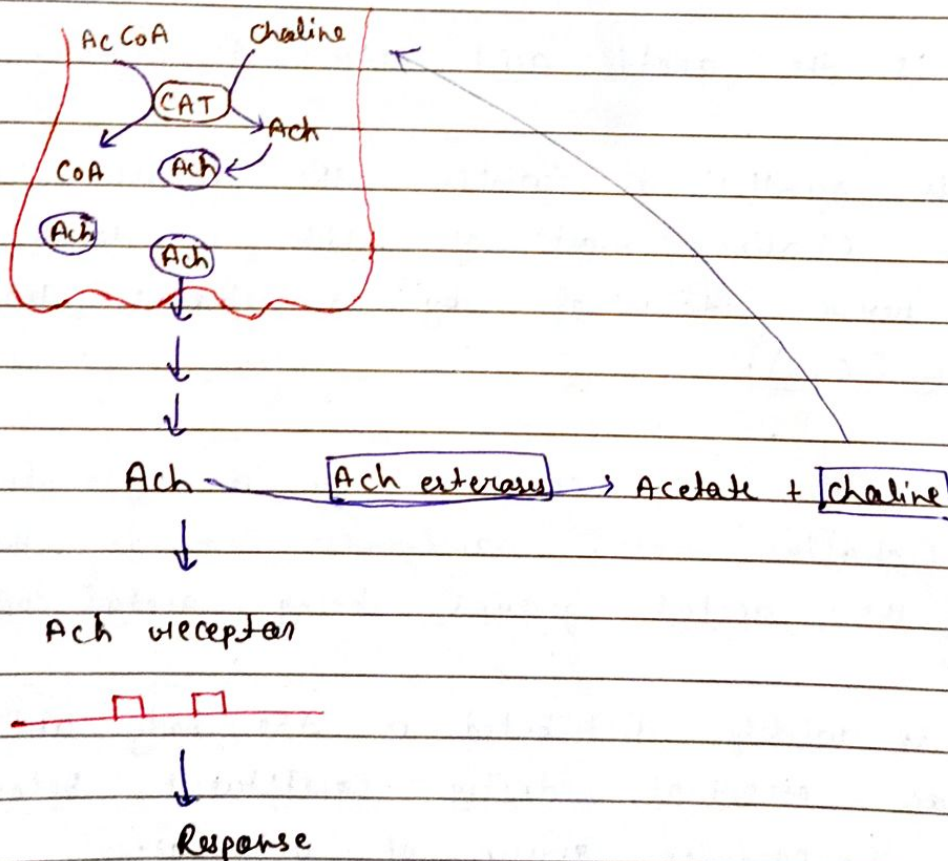 Ac CoA Choline
CAT
Ach
CoA Ach
Ach
Ach
Ach Ach esterases Acetate + Choline
Ach receptor
Response